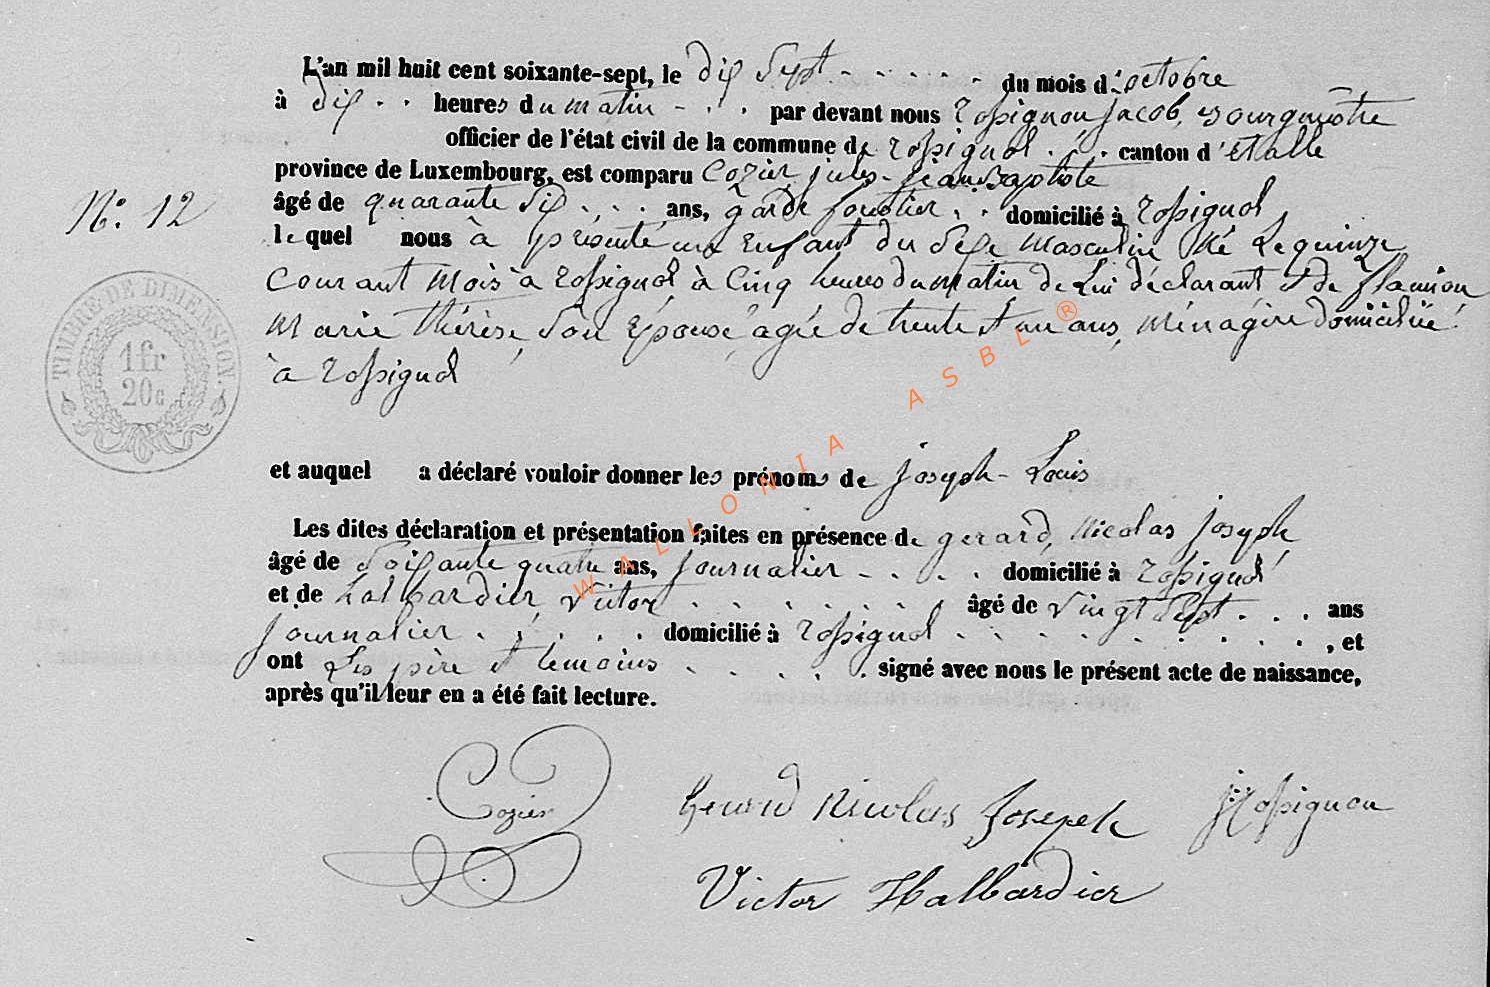 L'an mil huit cent soixante-sept, le dix sept du mois d'octobre
à dix heures du matin par devant nous rossignon jacob, bourgmestre
officier de l'état civil de la commune de rossignol canton d'étalle
province de Luxembourg, est comparu Cozier jules-jean Baptiste
N° 12
âgé de quarante six ans, garde forestier domicilié à rossignol
le quel nous à présenté un Enfant du sexe masculin Né Le quinze
Courant mois à rossignol à Cinq heures du matin de Lui déclarant & de flamion
Marie thérèse, son Epouse, agée de trente et un ans, Ménagère domiciliée
à rossignol
TIMBRE DE DIMENSION.
1 fr
20c
et auquel a déclaré vouloir donner les prénoms de joseph-Louis
Les dites déclaration et présentation faites en présence de gerard, Nicolas joseph
âgé de soixante quatre ans, journalier domicilié à rossignol
et de halbardier victor âgé de vingt sept ans
journalier domicilié à rossignol , et
ont Les père et temoins signé avec nous le présent acte de naissance,
après qu'il leur en a été fait lecture.
Cozier Gerard Nicolas Joseph J Rossignon
Victor Halbardier
WALLONIA ASBL ®